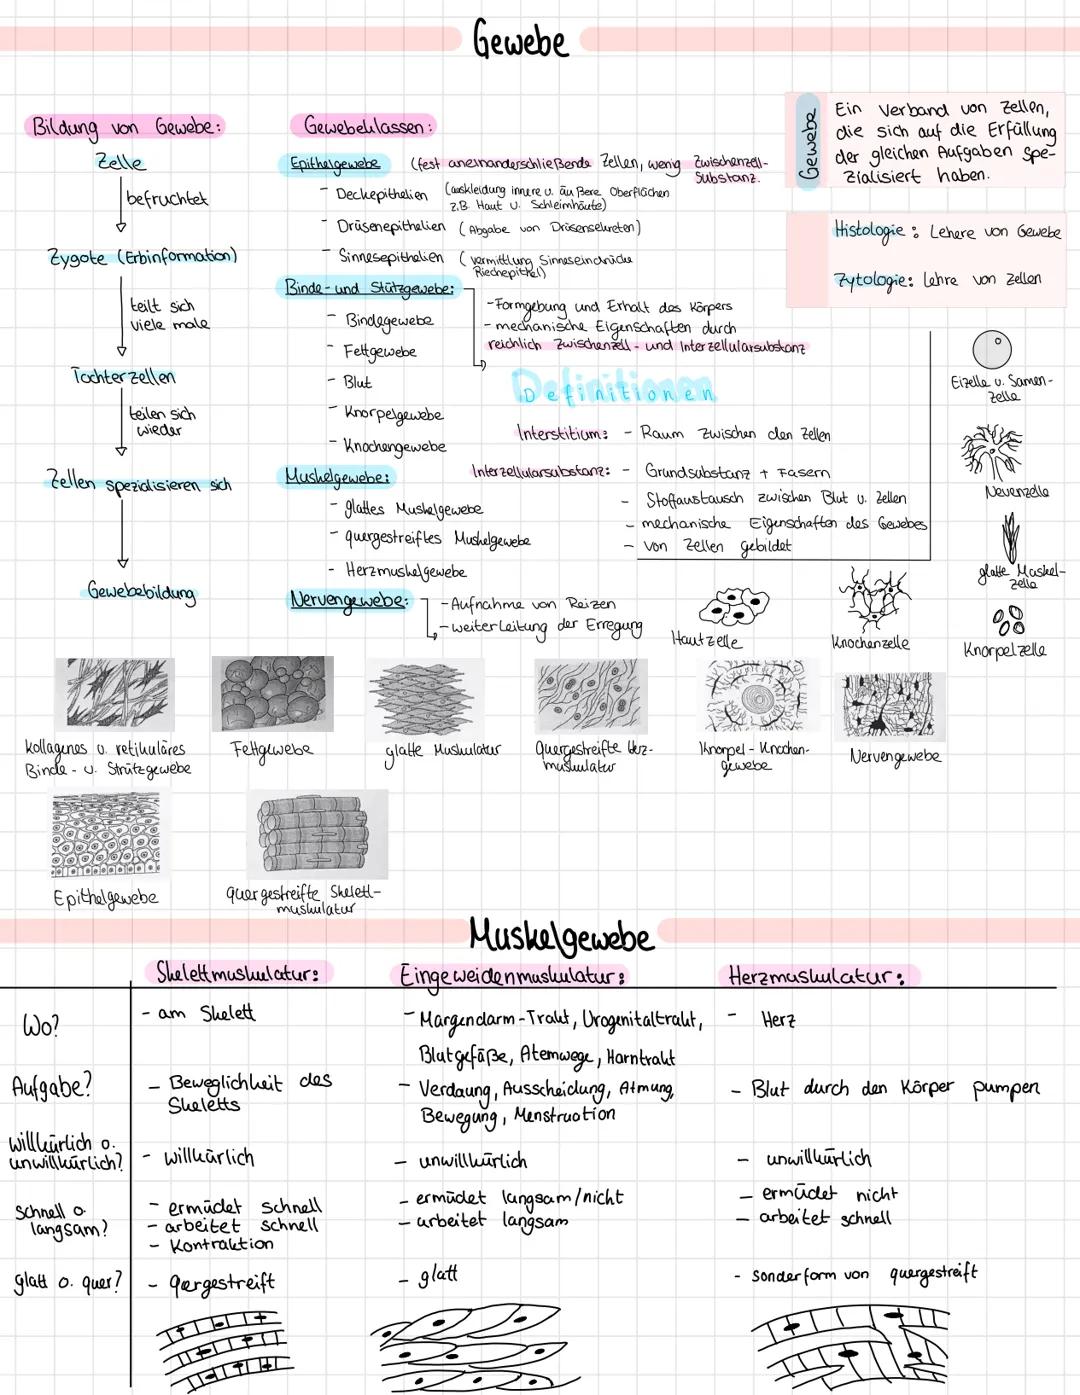 Gewebe
Bildung von Gewebe:
Zelle
befruchtet
Zygote (Erbinformation)
teilt sich
viele male
Tochterzellen
teilen sich
wieder
Zellen spezialisieren sich
Gewebebildung
Gewebeklassen:
Epithelgewebe (fest aneinanderschließende Zellen, wenig Zwischenzell-
Substanz.
- Deckepithelien (auskleidung innere u. äußere Oberflächen
z.B. Haut u. Schleimhäute)
- Drüsenepithelien (Abgabe von Drüsensekreten)
- Sinnesepithelien (vermittlung Sinneseindrücke
Riechepithel)
Binde- und Stützgewebe:
- Bindegewebe
- Fettgewebe
- Blut
- Knorpelgewebe
- Knochengewebe
- Formgebung und Erhalt des Körpers
- mechanische Eigenschaften durch
reichlich Zwischenzell- und Interzellularsubstanz
Muskelgewebe:
- glattes Muskelgewebe
- quergestreiftes Muskelgewebe
- Herzmuskelgewebe
Nervengewebe:
- Aufnahme von Reizen
- weiterleitung der Erregung
Gewebe
Ein Verband von Zellen,
die sich auf die Erfüllung
der gleichen Aufgaben spe-
zialisiert haben.
Histologie: Lehere von Gewebe
Zytologie: Lehre von Zellen
Definitionen
Interstitium: - Raum zwischen den Zellen
Interzellularsubstanz: - Grundsubstanz + Fasern
- Stoffaustausch zwischen Blut u. Zellen
- mechanische Eigenschaften des Gewebes
- von Zellen gebildet
Eizelle u. Samen-
zelle
Nevenzelle
glatte Muskel-
zelle
Knorpelzelle
Hautzelle
Knochenzelle
kollagenes u. retikuläres
Binde- u. Strützgewebe
Fettgewebe
glatte Muskulatur
Quergestreifte Herz-
muskulatur
Knorpel-Knochen-
gewebe
Nervengewebe
Epithelgewebe
quergestreifte Skelett-
muskulatur
Muskelgewebe
Skelettmuskulatur:
Eingeweidenmuskulatur:
Herzmuskulatur:
Wo?
- am Skelett
- Margendarm-Trakt, Urogenitaltrakt,
Blutgefäße, Atemwege, Harntrakt
- Herz
Aufgabe?
- Beweglichkeit des
Skeletts
- Verdaung, Ausscheidung, Atmung,
Bewegung, Menstruation
- Blut durch den Körper pumpen
willkürlich o.
unwillkürlich?
- willkürlich
- unwillkürlich
- unwillkürlich
schnell o.
langsam?
- ermüdet schnell
- arbeitet schnell
- Kontraktion
- ermüdet langsam/nicht
- arbeitet langsam
- ermüdet nicht
- arbeitet schnell
glatt o. quer?
- qergestreift
- glatt
- Sonderform von quergestreift